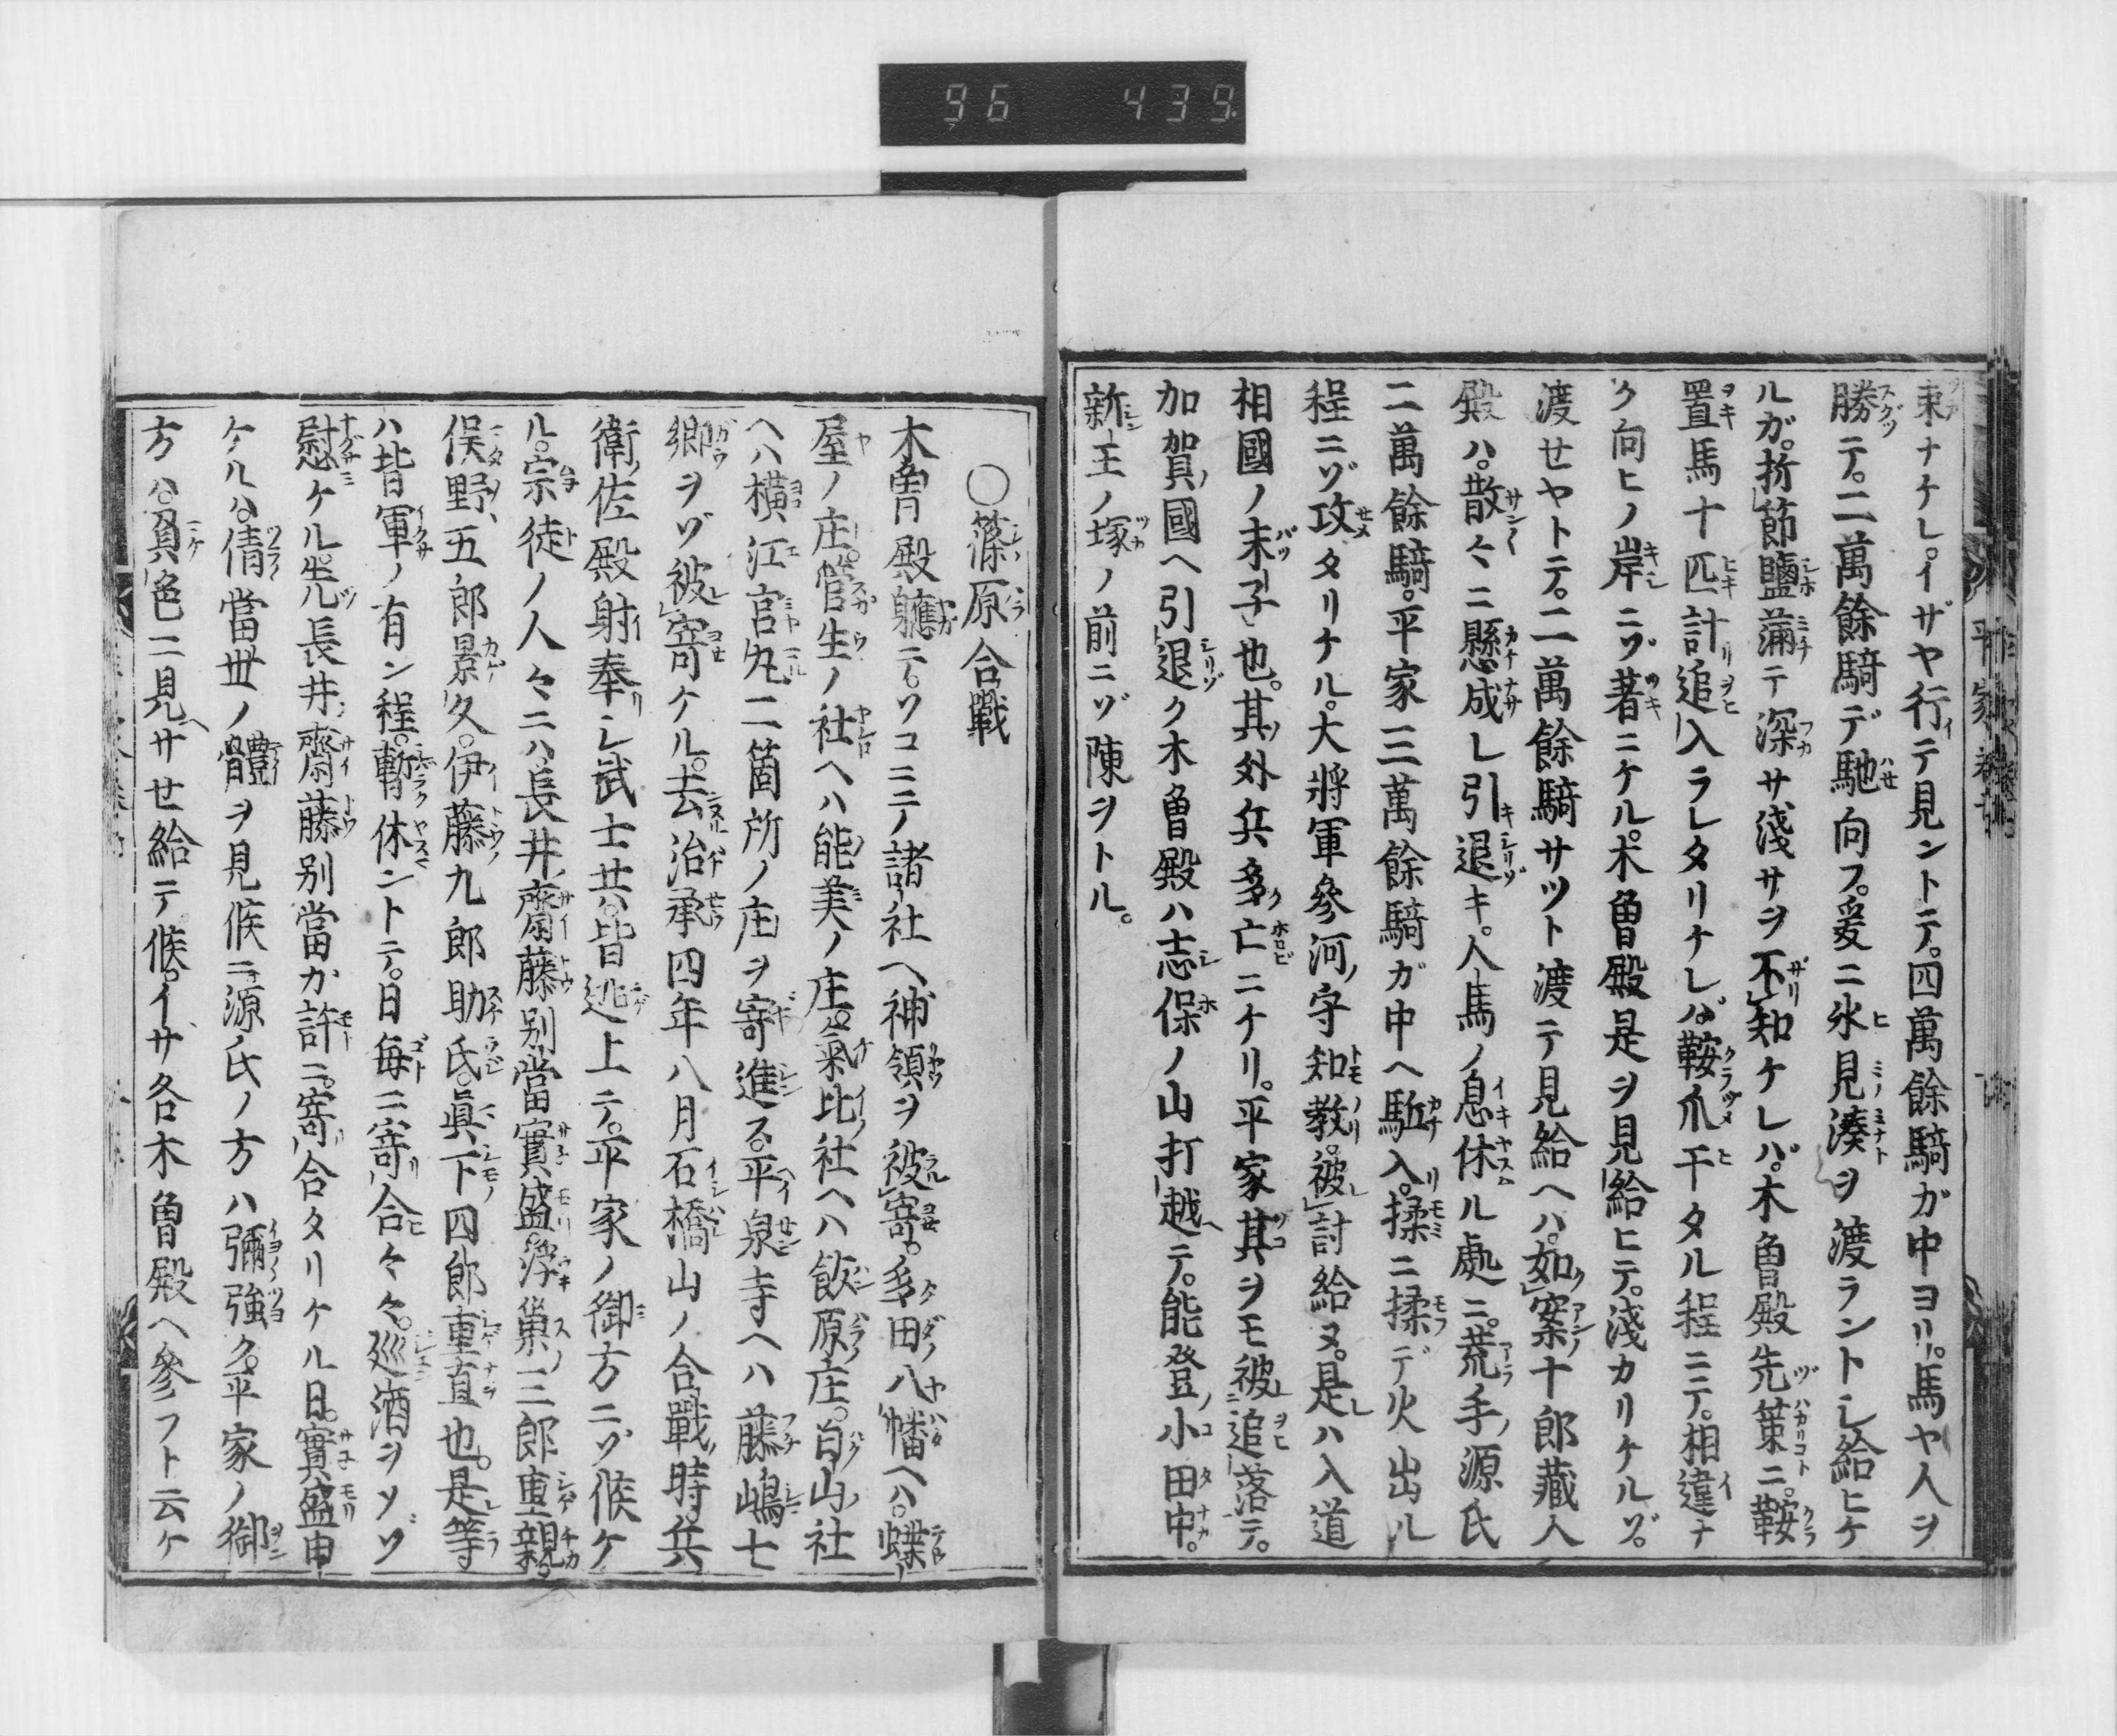 96 439
束ナケレ。イザヤ行テ見ントテ。四萬餘騎ガ中ヨリ。馬ヤ人ヲ
勝テ。二萬餘騎デ馳向フ。爰ニ氷見湊ヲ渡ラントシ給ヒケ
ルガ。折節鹽滿テ深サ淺サヲ不知ケレバ。木曽殿先策ニ。鞍
置馬十匹計追入ラレタリケレバ。鞍爪干タル程ニテ。相違ナ
ク向ヒノ岸ニゾ著ニケル。木曽殿是ヲ見給ヒテ。淺カリケルゾ。
渡セヤトテ。二萬餘騎サツト渡テ見給ヘハ。如案十郎藏人
殿ハ。散々ニ懸成レ引退キ。人馬ノ息休ル處ニ。荒手ノ源氏
二萬餘騎。平家三萬餘騎ガ中ヘ駈入。揉ニ揉デ火出ル
程ニゾ攻タリケル。大將軍參河ノ守知教。被討給ヌ。是ハ入道
相國ノ末子也。其外兵多亡ニケリ。平家其ヲモ被追落テ。
加賀ノ國ヘ引退ク木曽殿ハ志保ノ山打越テ。能登ノ小田中。
新王ノ塚ノ前ニゾ陳ヲトル。
○篠原合戰
木曽殿軈テ。ソコニテ諸社ヘ補領ヲ被寄。多田ノ八幡ヘハ。蝶
屋ノ庄。菅生ノ社ヘハ能美ノ庄。氣比ノ社ヘハ飯原庄。白山ノ社
ヘハ横江宮丸二箇所ノ庄ヲ寄進ス。平泉寺ヘハ藤嶋七
郷ヲゾ被寄ケル。去治承四年八月石橋山ノ合戰ノ時兵
衛佐殿射奉レ武士共。皆逃上テ。平家ノ御方ニゾ候ケ
ル。宗徒ノ人々ニハ。長井ノ齋藤別當實盛。浮巢ノ三郎重親。
俣野ノ五郎景久。伊藤ノ九郎助氏。眞下ノ四郎重直也。是等
ハ皆軍ノ有ン程。暫休ントテ。日毎ニ寄合々々。巡酒ヲソゾ
慰ケル。先ヅ長井ノ齋藤別當カ許ニ。寄合タリケル日。實盛申
ケルハ。倩當世ノ體ヲ見候ニ。源氏ノ方ハ彌強ク。平家ノ御
方ハ。負色ニ見サセ給テ候。イサ各木曽殿ヘ參フト云ケ